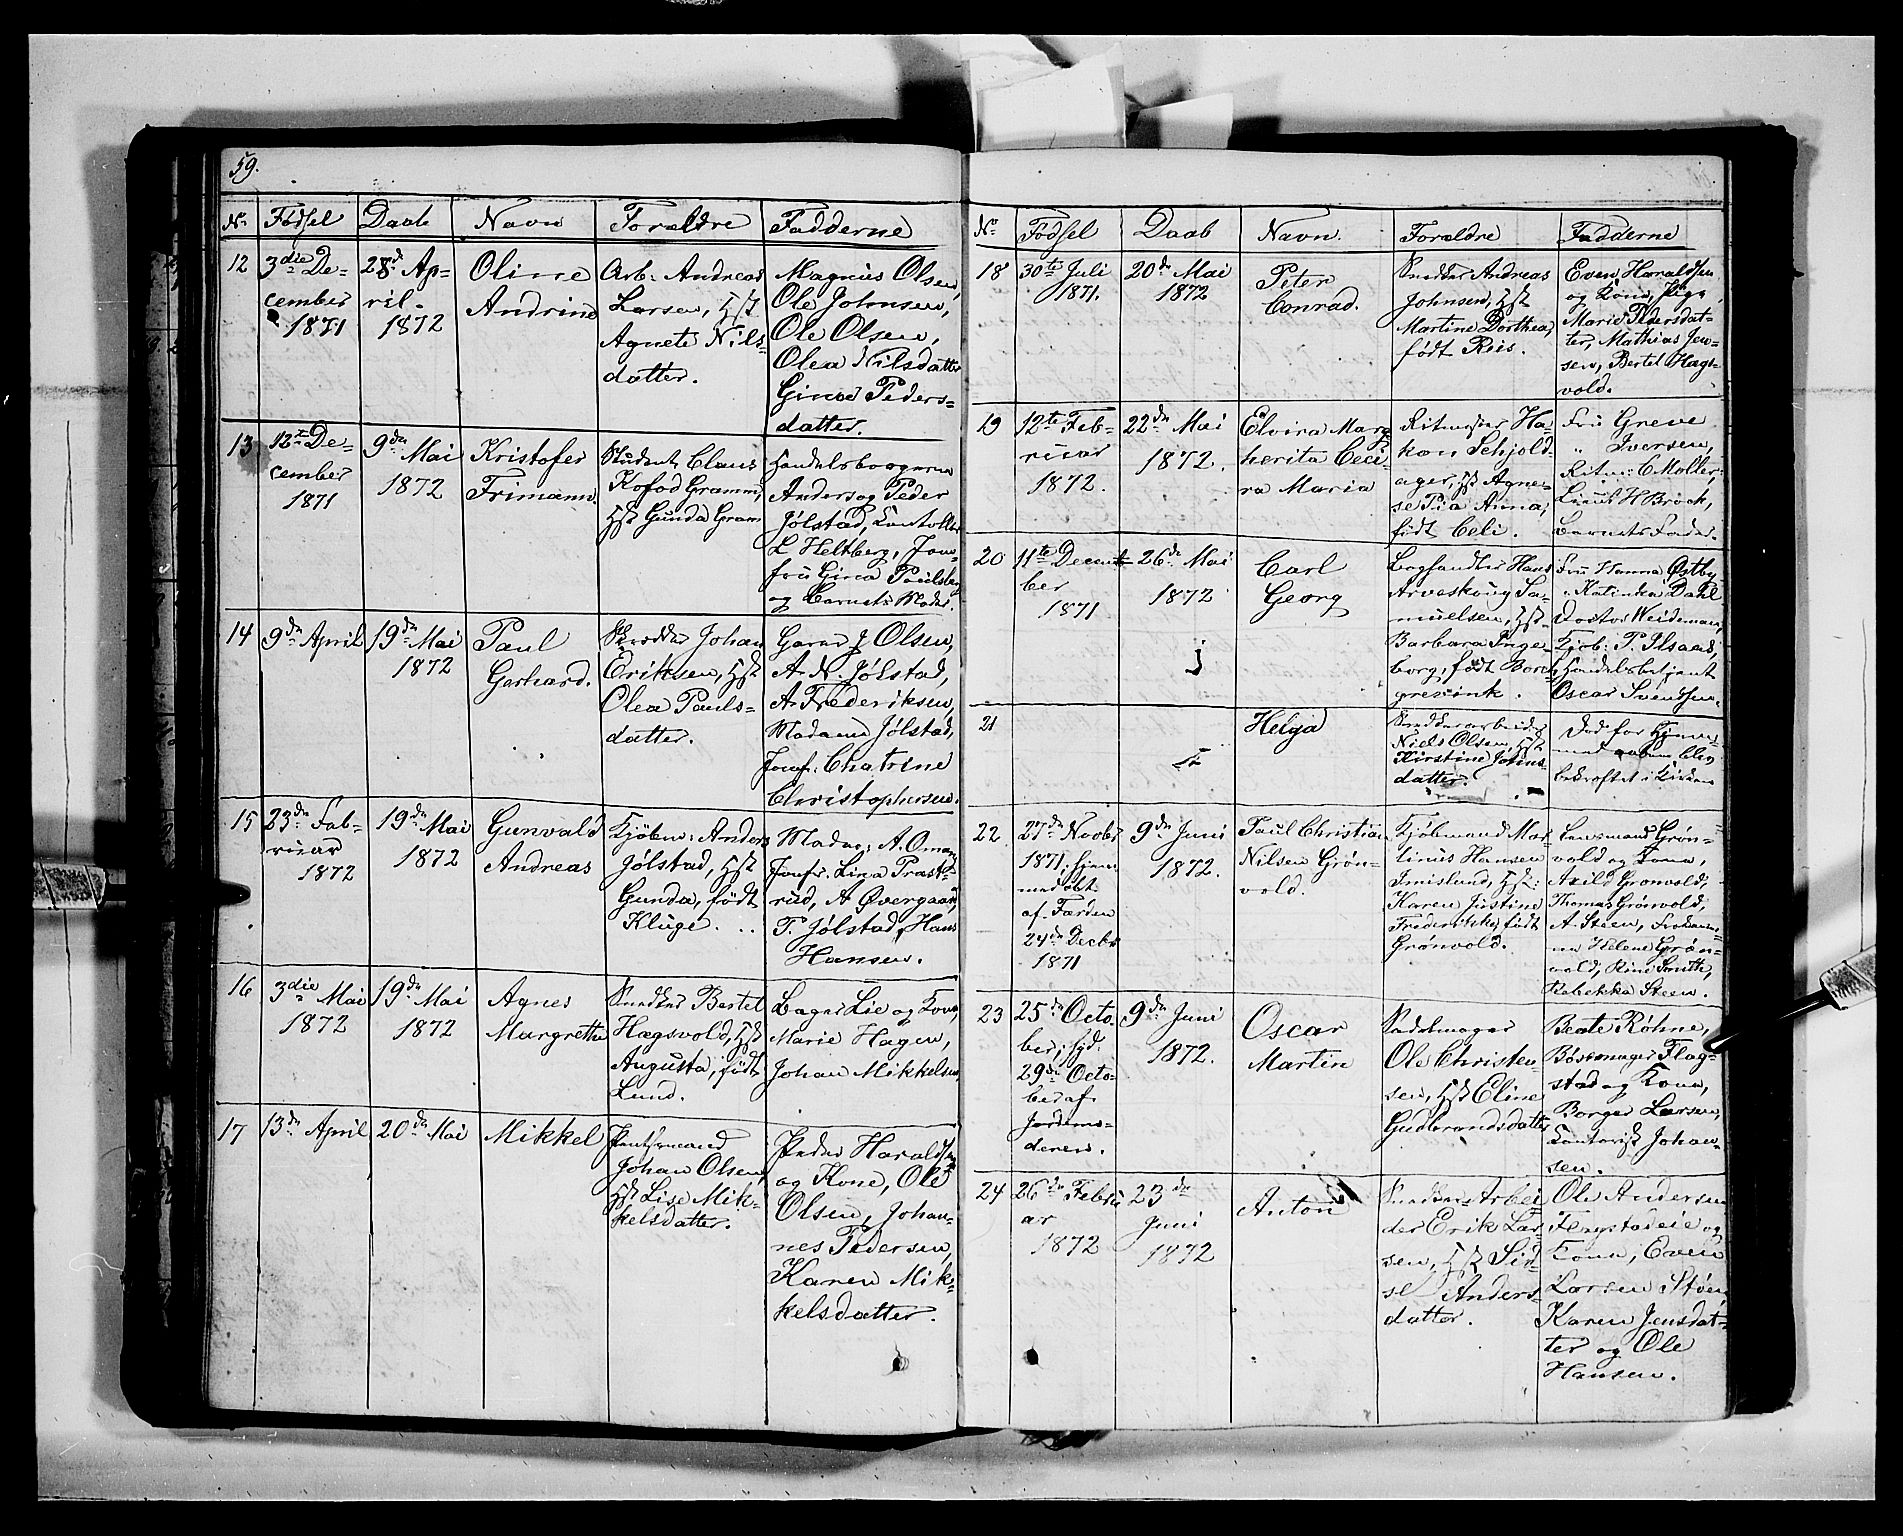 59.
No Fødsel Daab Navn Forældre Fadderne
12 3die De-
cember
1871
28de Ap-
ril.
1872
Oline
Andrine
Arb: Andreas
Larsen, Hst
Agnete Nils-
datter.
Magnus Olsen,
Ole Johnsen,
Ole Olsen,
Olea Nilsdatter
Gina Peders-
datter.
13 12te De-
cember
1871
9de Mai
1872
Kristofer
Frimann.
Student Claus
Kofod Gramm,
Hst Gunda Gram
Handelsborgerne
Anders og Peder
Jølstad,
L Heltberg, Jom-
fru Gina
og Barnets Moder.
14 9de April
19de Mai
1872
Paul
Gerhard.
Skrædder Johan
Eriksen, Hst
Olea Pauls-
datter.
Garver J Olsen,
A. N. Jølstad,
A. Frederiksen,
Madame Jølstad,
Jomf. Chatrine
Christophersen.
15 23de Feb-
ruar
1872
19de Mai
1872
Gunvald
Andreas
Kjøbm: Anders
Jølstad, Hst
Gunda, født
Kluge.
Madm: A. Oman,
Jomfr. Lina Prast-
rud, A Øvergaard,
P. Jølstad, Hans
Hansen.
16 3die Mai
1872
19de Mai
1872
Agnes
Margrethe
Snedker Bertel
Hagsvold, Hst
Augusta, født
Lund.
Bager Lie og Kone,
Marie Hagen,
Johan Mikkelsen
17 13de April
20de Mai
Mikkel
Johan Olsen,
Hst Lise Mik-
kelsdatter.
Peder Haraldsen
og Kone, Ole
Olsen, Johan-
nes Pedersen,
Karen Mik-
kelsdatter.
No Fødsel Daab Navn. Forældre Fadderne
18 30te Juli
1871.
20de Mai
1872
Peter
Conrad.
Snedker Andreas
Johnsen, Hst
Martine Dorthea,
født Riis.
Even Haraldsen
og Kone, Pige
Marie Pedersdat-
ter, Mathias Jen-
sen, Bertel Hags-
vold.
19 12te Feb-
ruar
1872.
22de Mai
1872.
Elvira Marg-
herita Ceci-
ra Maria
Ritmester Ha-
kon Schjold-
ager, Hst Agne-
se Pia Anna,
født Celi.
Fru Greve
" Iversen,
Ritm: C Møller,
Lieut H Brock,
Barnets Fader.
20 11te Decem-
ber
1871
26de Mai
1872
Carl
Georg
Boghandler Hans
Arveskoug Sa-
muelsen, Hst
Barbara Inge-
borg, født Borch-
grevink.
Fru Hanna Østby
" Katinka Dahl
Doctor Weideman,
Kjøb: P. Ilsaas,
Handelsbetjent
Oscar Svendsen.
21
Helga
Snedkerarbeider
Niels Olsen, Hst
Kirstine Johns-
datter.
Død før Hjem-
medaaben blev
bekræftet i Kirken
22 27de Novbr
1871, hjem-
medøbt
af Færden
24de Decbr
1871
9de Juni
1872.
Paul Christian
Nilsen Grøn-
vold.
Kjøbmand Mar-
tinus Hansen
Imislund, Hst:
Karen Justine
Frederikke, født
Grønvold.
Lensmand Grøn-
vold og Kone,
Axild Grønvold,
Thomas Grønvold,
A. Steen, Johan-
ne Helene Grøn-
vold, Rine Smith,
Rebekka Steen.
23 25de Octo-
ber, hjd:
29de Octo-
ber af
Jordemo-
deren.
9de Juni
1872.
Oscar
Martin
Sadelmager
Ole Christen-
sen, Hst Eline
Gudbrandsdatter
Beate Røhne,
Bøssemager Flag-
stad og Kone,
Borger Larsen,
Kontorist Johan-
sen.
24 26de Febru
ar
1872
23de
Juni
1872
Anton
Snedker-Arbei-
der Erik Lar-
sen, Hst Sid-
sel Anders-
datter.
Ole Andersen
Fengstadeie og
Kone, Even
Larsen Støen,
Karen Jensdat-
ter og Ole
Hansen.